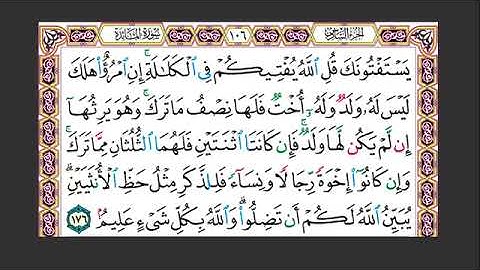 الجزء السادس ١٠٦ سورة المائدة
يَسْتَفْتُونَكَ قُلِ ٱللَّهُ يُفْتِيكُمْ فِى ٱلْكَلَٰلَةِ ۚ إِنِ ٱمْرُؤٌا۟ هَلَكَ
لَيْسَ لَهُۥ وَلَدٌ وَلَهُۥٓ أُخْتٌ فَلَهَا نِصْفُ مَا تَرَكَ ۚ وَهُوَ يَرِثُهَآ
إِن لَّمْ يَكُن لَّهَا وَلَدٌ ۚ فَإِن كَانَتَا ٱثْنَتَيْنِ فَلَهُمَا ٱلثُّلُثَانِ مِمَّا تَرَكَ ۚ
وَإِن كَانُوٓا۟ إِخْوَةً رِّجَالًا وَنِسَآءً فَلِلذَّكَرِ مِثْلُ حَظِّ ٱلْأُنثَيَيْنِ ۗ
يُبَيِّنُ ٱللَّهُ لَكُمْ أَن تَضِلُّوا۟ ۗ وَٱللَّهُ بِكُلِّ شَىْءٍ عَلِيمٌۢ ١٧٦